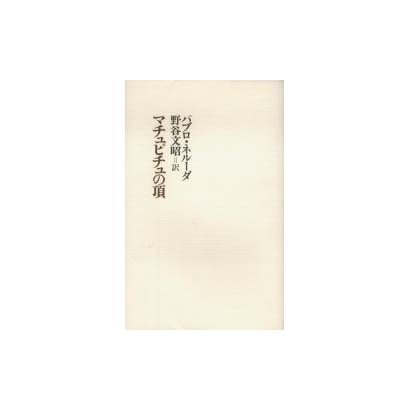 パブロ・ネルーダ
野谷文昭＝訳
マチュピチュの頂